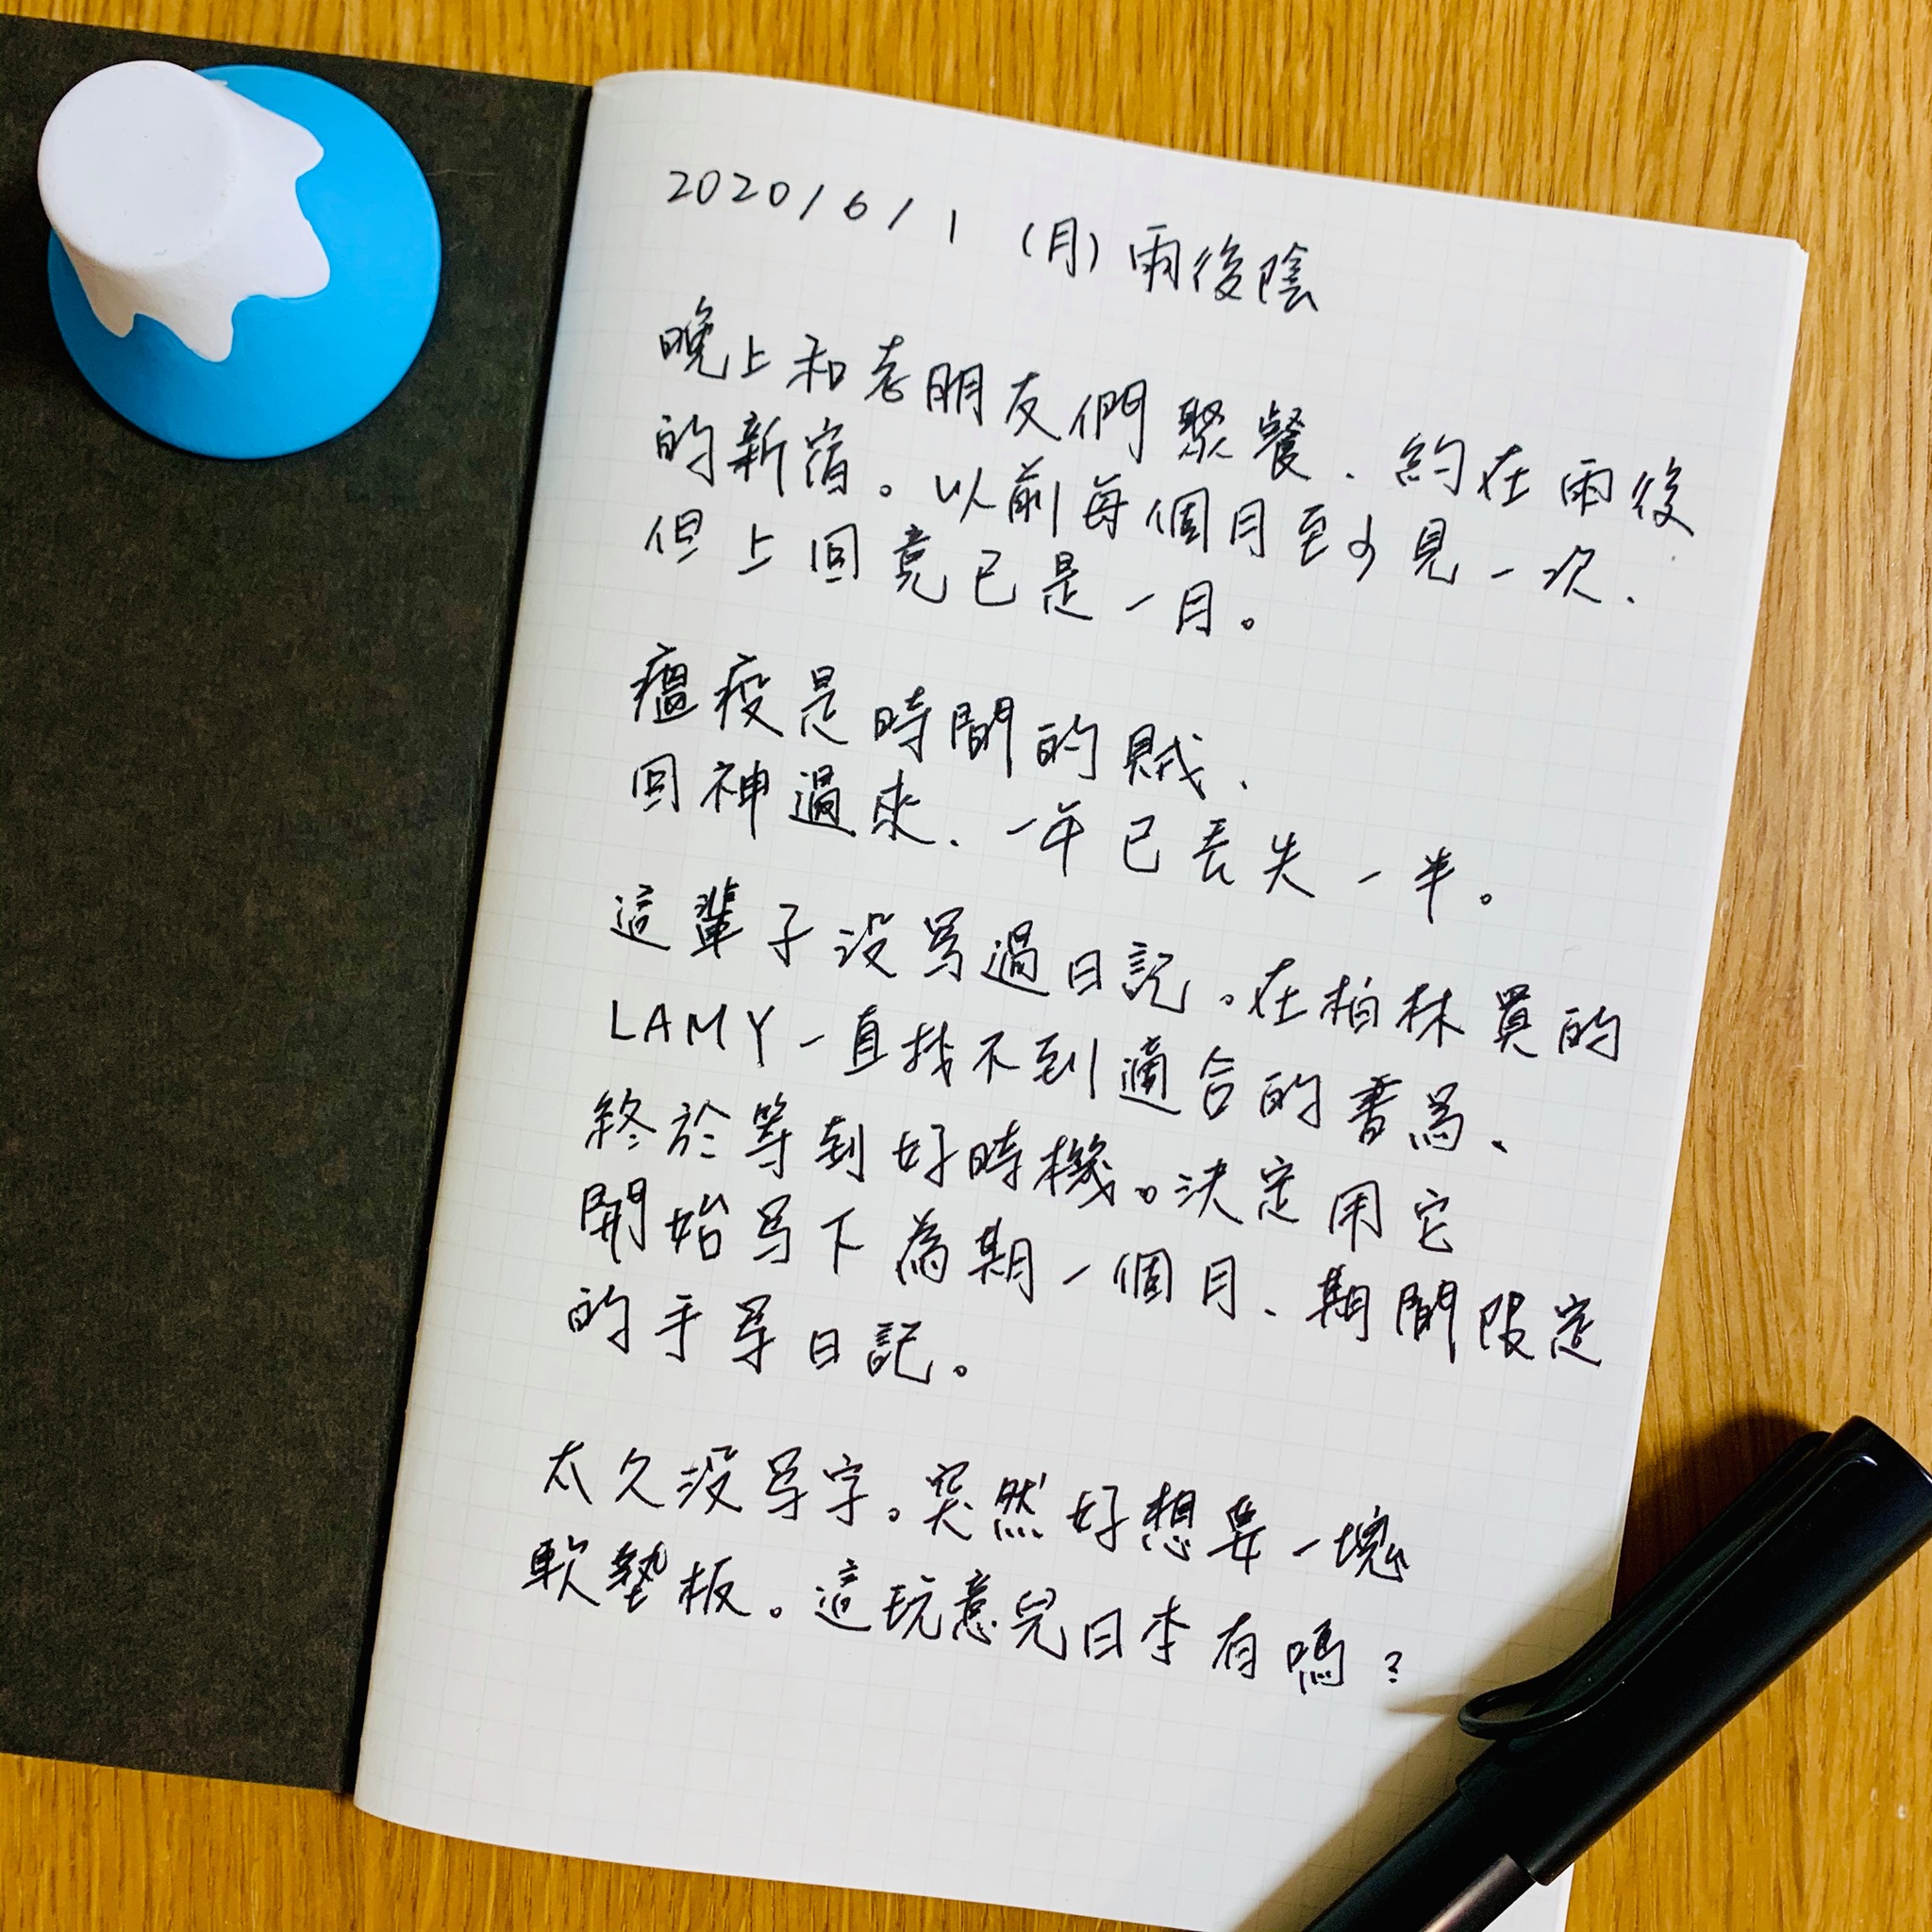 2020/6/1 (月) 雨後陰
晚上和老朋友們聚餐、約在雨後
的新宿。以前每個月至少見一次、
但上回竟已是一月。
瘟疫是時間的賊、
回神過來、一年已丟失一半。
這輩子沒寫過日記。在柏林買的
LAMY一直找不到適合的書寫、
終於等到好時機。決定用它
開始写下為期一個月、期間限定
的手写日記。
太久沒写字。突然好想要一塊
軟墊板。這玩意兒日本有嗎?